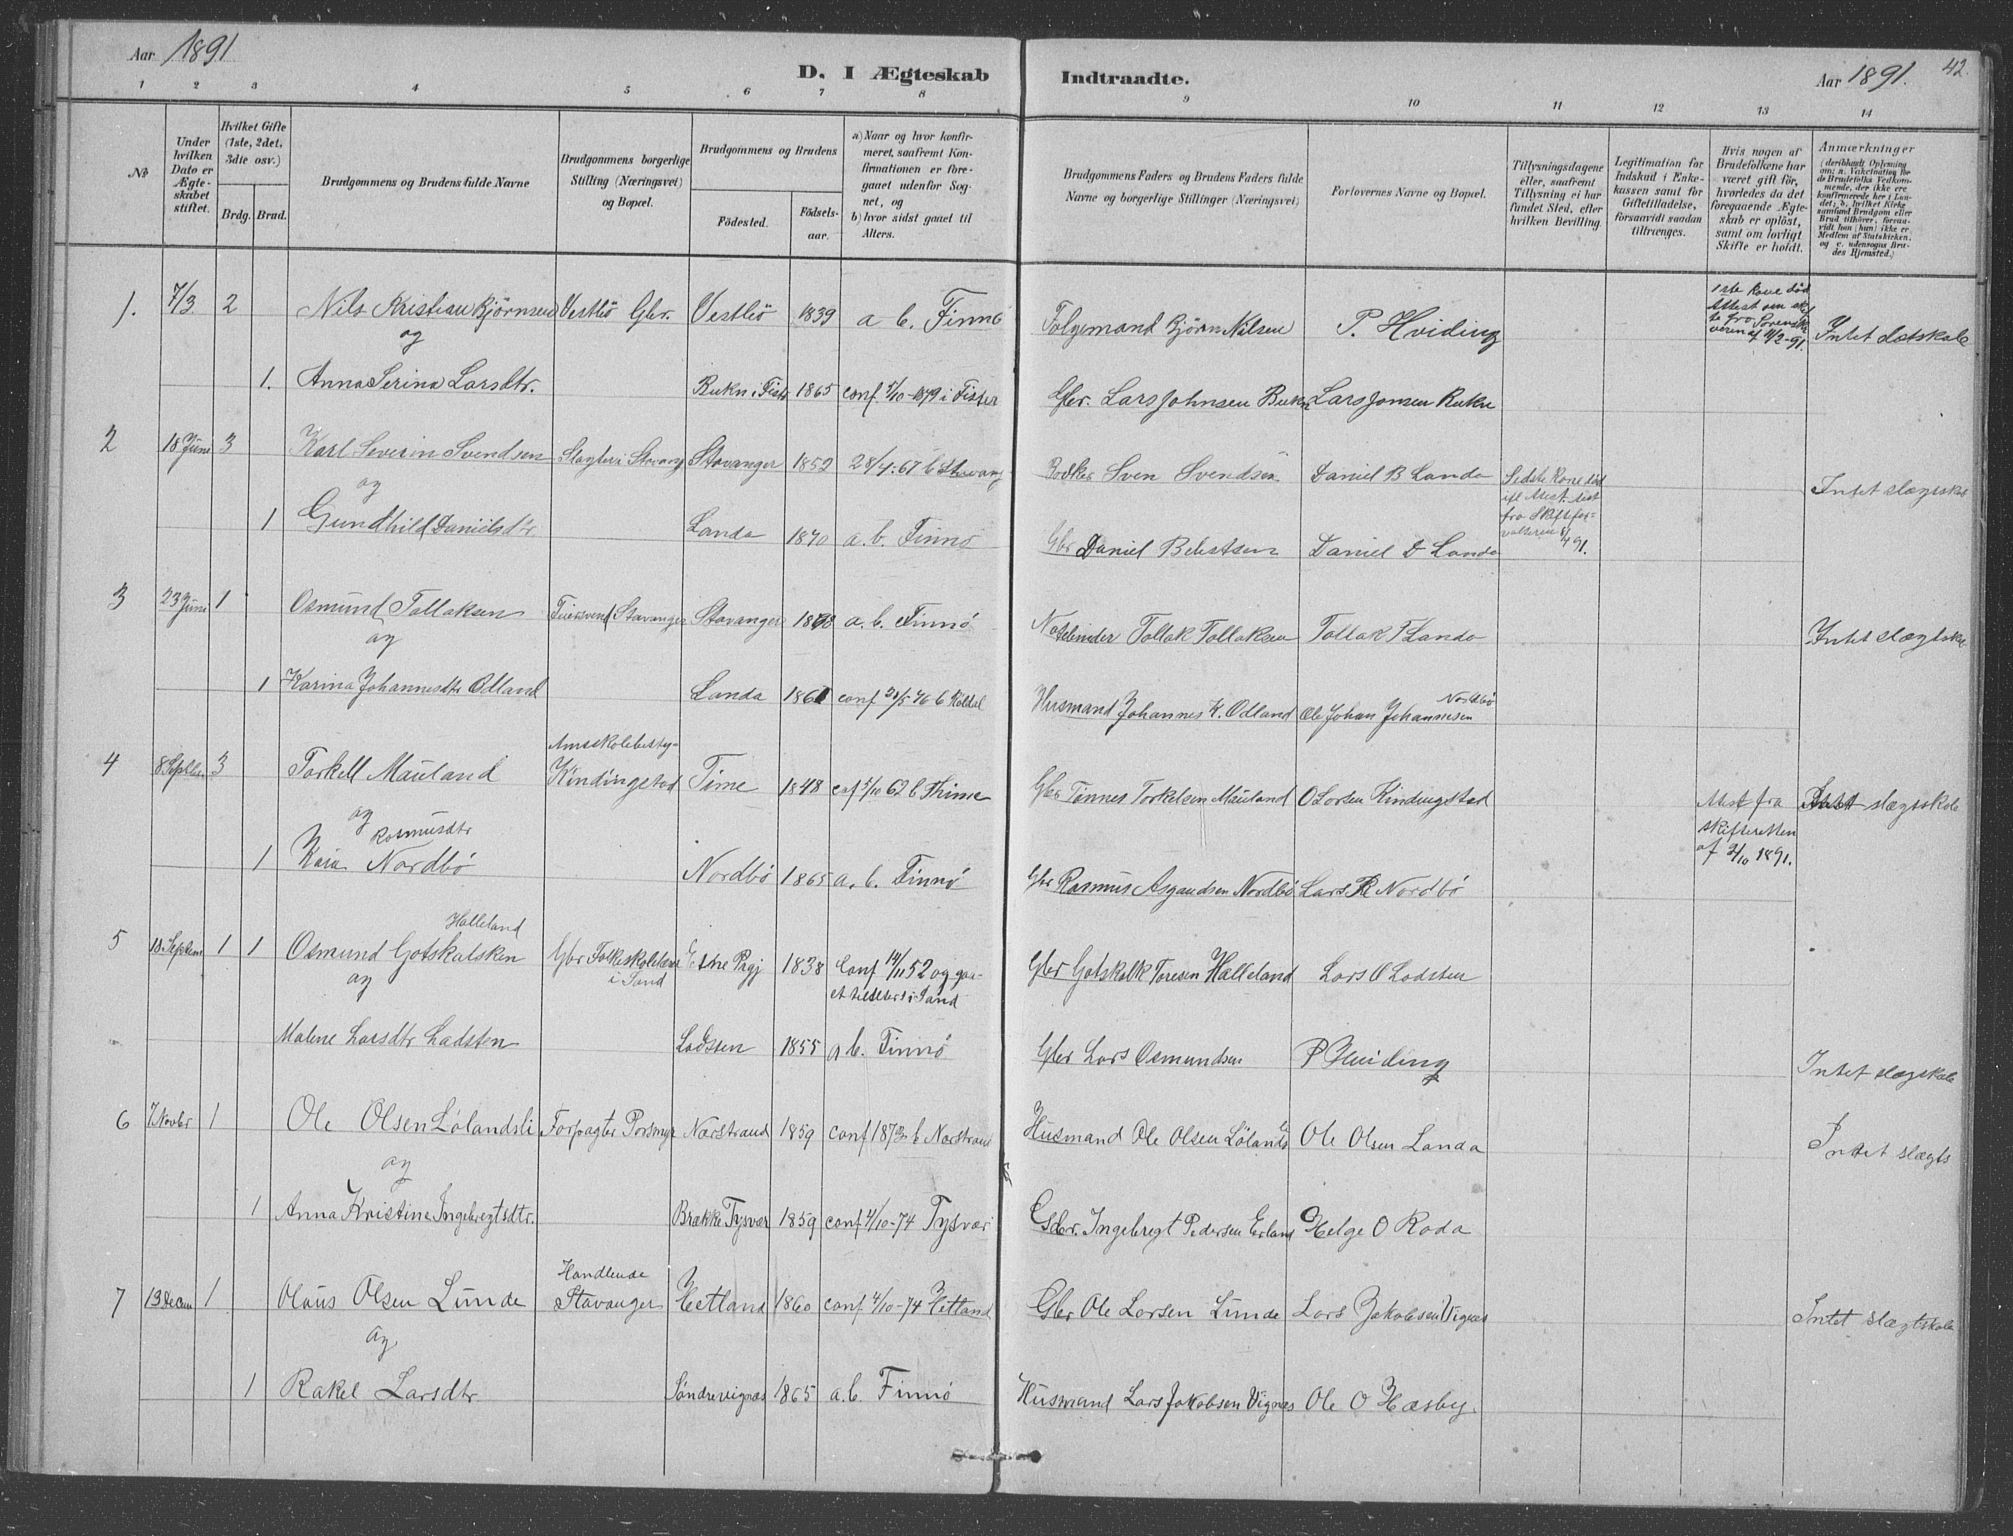 Aar 1891
D. I Ægteskab Indtraadte.
Aar 1891. 42.
1 2 3 4 5 6 7 8 9 10 11 12 13 14
№
Under hvilken Dato er Ægteskabet stiftet.
Hvilket Gifte (1ste, 2det, 3die osv.)
Brdg. Brud.
Brudgommens og Brudens fulde Navne
Brudgommens borgerlige Stilling (Næringsvei) og Bopæl.
Brudgommens og Brudens
Fødested. Fødsels-aar.
a) Naar og hvor konfirmeret, saafremt Konfirmationen er foregaaet udenfor Sognet, og
b) hvor sidst gaaet til Alters.
Brudgommens Faders og Brudens Faders fulde Navne og borgerlige Stillinger (Næringsvei)
Forlovernes Navne og Bopæl.
Tillysningsdagene eller, saafremt Tillysning ei har fundet Sted, efter hvilken Bevilling.
Legitimation for Indskud i Enkekassen samt for Giftetilladelse, forsaavidt saadan tiltrænges.
Hvis nogen af Brudefolkene har været gift før, hvorledes da det foregaaende Ægteskab er opløst, samt om lovligt Skifte er holdt.
Anmærkninger
1. 7/3 2 Nils Kristian Bjørnsen Vestbø Gbr. Vestbø 1839 a b. Finnø Folgemand Bjørn Nilsen P. Hviding 1ste Kone død Attest om skifte fra Sorenskriveren af 11/2-91. Intet slætskab
og
1. Anna Serina Larsdtr. Bukn i Fister 1865 conf 5/10-1879 i Fister Gbr. Lars Johnsen Bukn Lars Jonsen Bukn
2 18 Juni 3 Karl Severin Svendsen Slagter i Stavang Stavanger 1852 28/4.67 b Stavang Bødker Sven Svendsen Daniel B Landa Sidste Kone død ifl Attest fra Skifteforvalteren 491. Intet slægtskab
og
1 Gundhild Danielsdtr. Landa 1870 a. b. Finnø Gbr Daniel Daniel D Landa
3 23 Juni 1 Osmund Tollaksen Stavanger Stavanger a. b. Finnø Notebinder Tollak Tollaksen Tollak T Landa Intet slægtska
og
1 Karina Johannesdtr Odland Landa 1861 conf 21/5 76 b Husmand Johannes K. Odland Ole Johan Johannesen Nordbø
4 8 Septbr. 3 Torkell Mauland Amtskolebesty- Kindingstad Time 1848 cof 5/10 62 b Thime Gbr Tønnes Torkelsen Mauland O Larsen Kindingstad Attest fra skifteretten af 2/10 1891. Intet slægtskab
og
1 Kaia Rasmusdtr Nordbø Nordbø 1865 a. b. Finnø Gbr Rasmus Asgautsen Nordbø Lars R Nordbø
5 18 Septem 1 1 Osmund Gotskalsken Halleland Gbr Folkeskolelærer i Sand Etne Pgj 1838 Conf 14/11 52 og gaaet til alters i Sand Gbr Gotskalk Toresen Halleland Lars O Ladsten
og
Malene Larsdtr Ladsten Ladsten 1855 a b. Finnø Gbr Lars Osmundsen P Hviding Intet slægskab
6 7 Novbr 1 Ole Olsen Lølandsli Forpagter Porsmyr Narstrand 1859 conf 1873 b Narstrand Husmand Ole Olsen Løland Ole Olsen Landa Intet slægts
og
1 Anna Kristine Ingebregtsdtr. Brække Tysvær 1859 conf 4/10-74 Tysvær Gbr. Ingebregt Pedersen Erland Helge O Roda
7 13 Decem 1 Olaus Olsen Lunde Handlende Stavanger Hetland 1860 conf 4/10-74 Hetland Gbr Ole Larsen Lunde Lars Jakobsen Vignes Intet slægtskab
og
1 Rakel Larsdtr Søndrevignes 1865 a. b. Finnø Husmand Lars Jakobsen Vignes Ole O Hæsby.